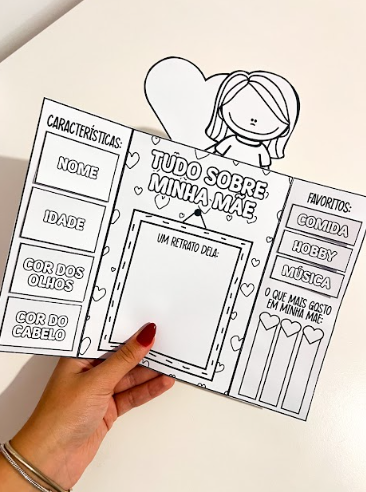 CARACTERÍSTICAS:
NOME
IDADE
COR DOS
OLHOS
COR DO
CABELO
TUDO SOBRE
MINHA MÃE
UM RETRATO DELA:
FAVORITOS:
COMIDA
HOBBY
MÚSICA
O QUE MAIS GOSTO
EM MINHA MÃE: